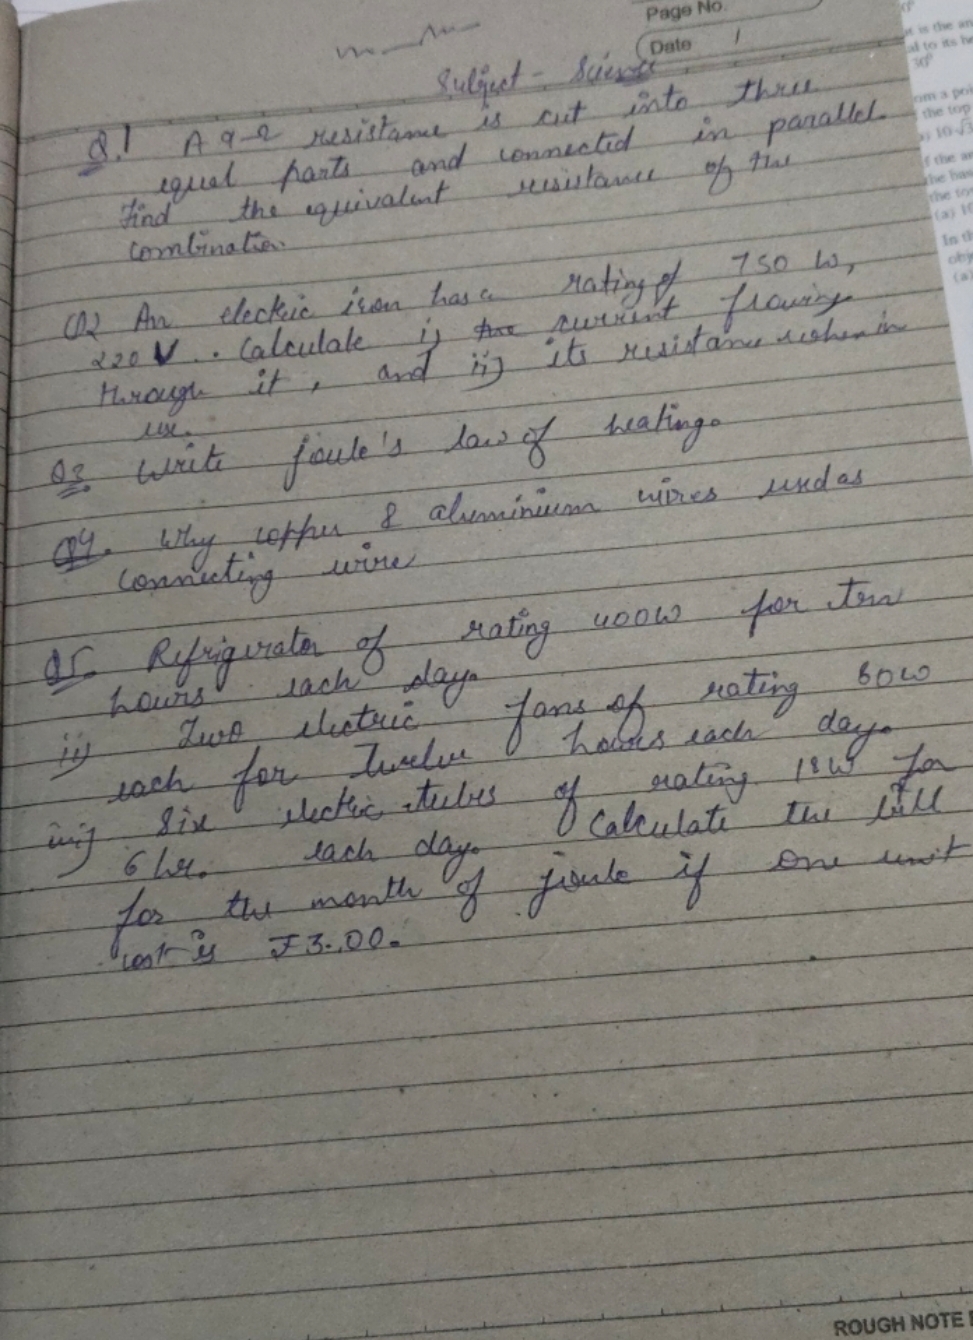 Page No.
Date /
Subject - Science
Q.1 A 9-Ω resistance is cut into three
equal parts and connected in parallel.
Find the equivalent resistance of the
combination.
Q2 An electric iron has a rating of 750 W,
220 V.. Calculate i) the current flowing
through it, and ii) its resistance when in
use.
Q3. Write joule's law of heating.
Q4. Why copper & aluminium wires used as
connecting wire
Q5. Refrigerator of rating 400W for ten
hours each day.
ii) Two electric fans of rating 80W
each for twelve hours each day.
iii) Six electric tubes of rating 18W for
6 hr. each day. Calculate the bill
for the month of joule if one unit
cost is ₹3.00.
ROUGH NOTE